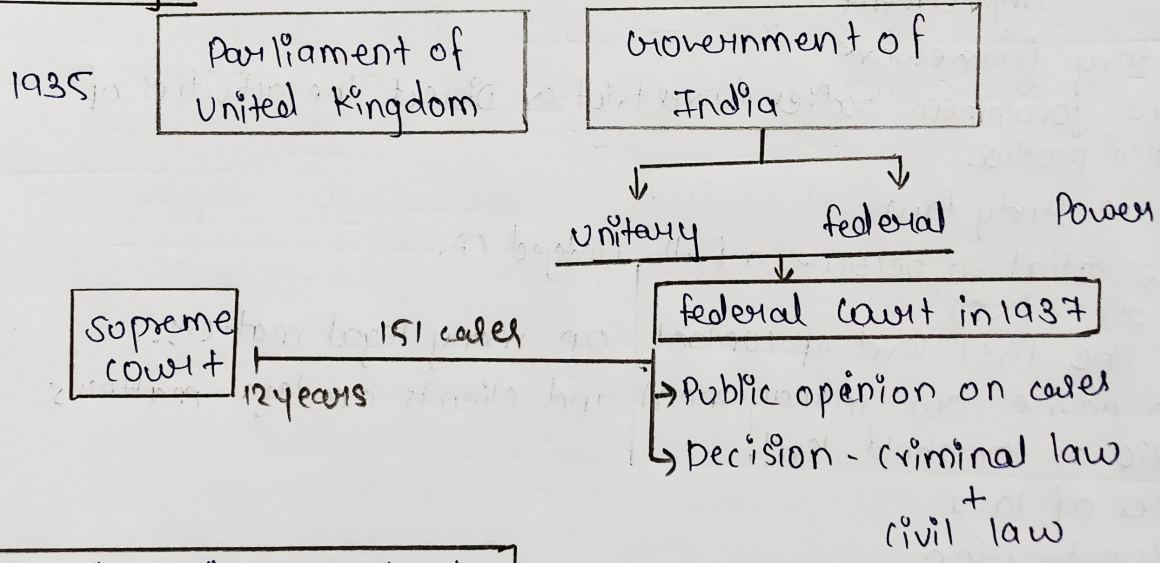 1935
Parliament of
United Kingdom
Government of
India
unitary
federal
Power
federal court in 1937
Supreme
court
151 cases
12 years
Public openion on cases
Decision - criminal law
+
civil law